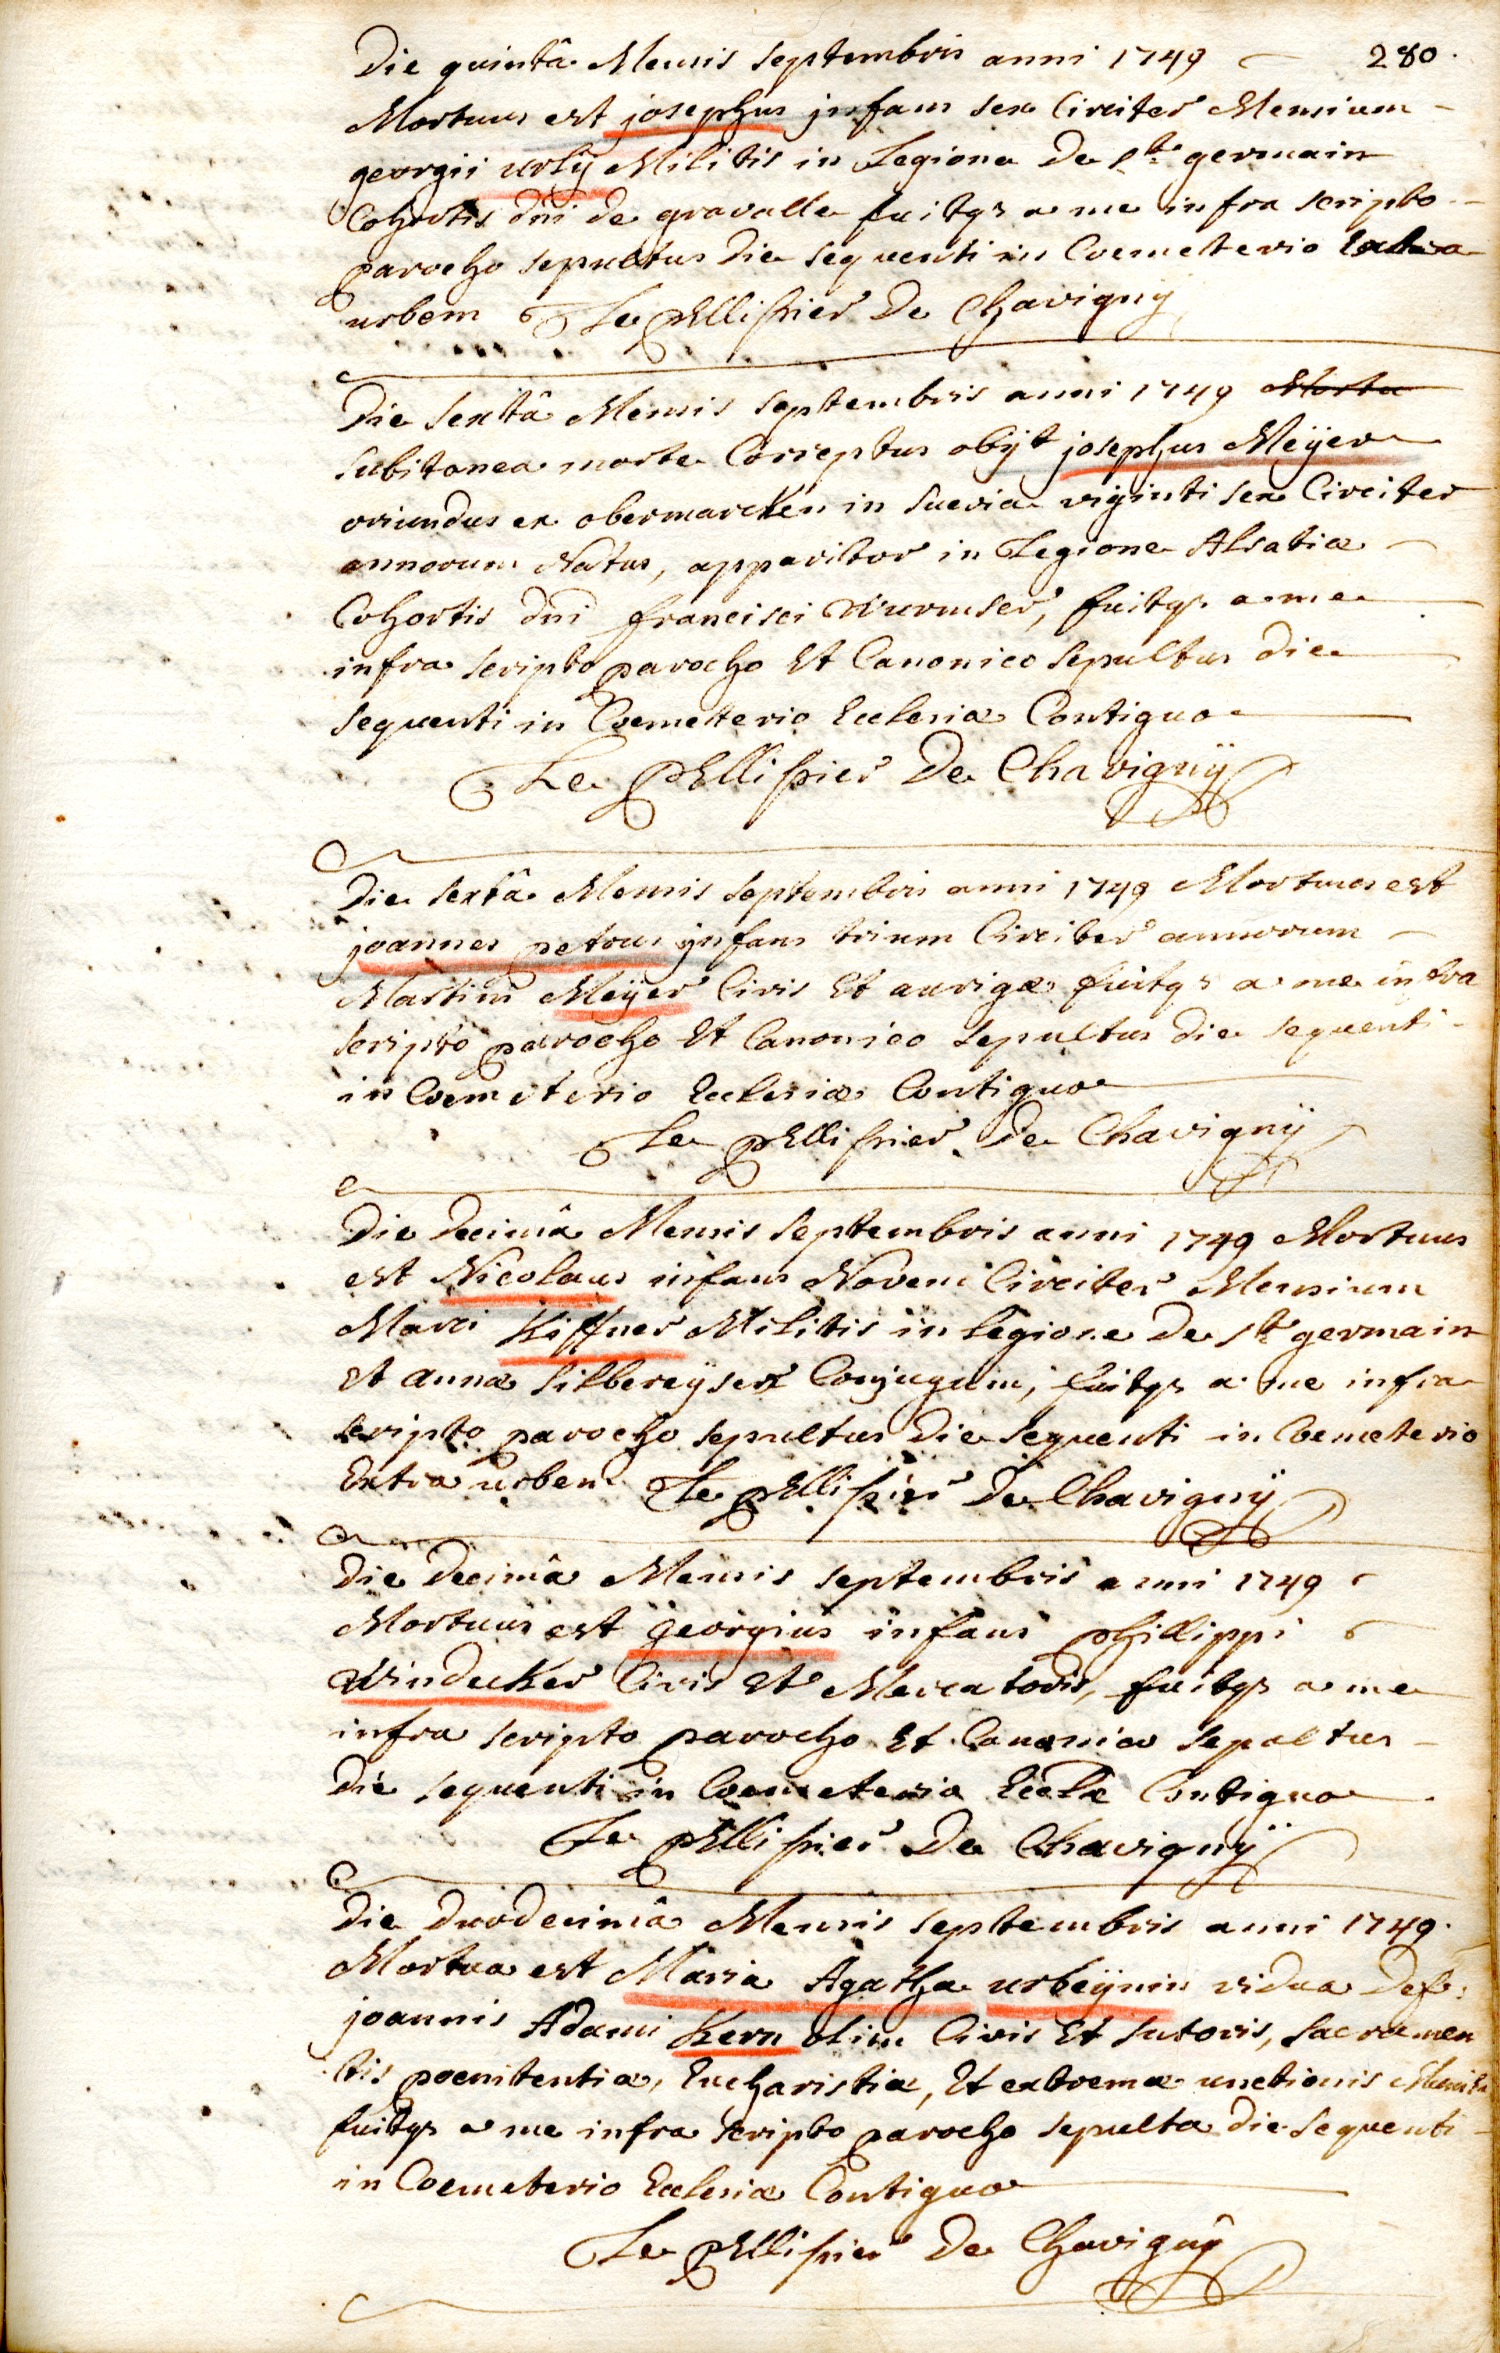 280.
Die quintâ Mensis septembris anni 1749
Mortuus est josephus jnfans sex Circiter Mensium
georgii urly Militis in Legione De st germain
Cohortis dni de gravalle fuitqs a me infra scripto
parocho sepultus Die sequenti in Coemeterio Extra
urbem Le pEllissier De Chavigny
Die sextâ Mensis septembris anni 1749 Mortu
subitanea morte Correptus obijt josephus Meÿer
oriundus ex obermarcken in suevia viginti sex Circiter
annorum Natus, apparitor in Legione Alsatiæ
Cohortis dni francisci Wurmser, fuitqs a me
infra scripto parocho Et Canonico sepultus die
sequenti in Coemeterio Ecclesiæ Contiguo
Le pEllissier De Chavignÿ
Die sextâ Mensis septembris anni 1749 Mortuus est
joannes petrus jnfans trium Circiter annorum
Martini Meÿer Civis Et aurigæ fuitqs a me infra
scripto parocho Et Canonico sepultus Die sequenti
in Coemeterio Ecclesiæ Contiguo
Le pEllissier De Chavignÿ
Die Decimâ Mensis septembris anni 1749 Mortuus
est Nicolaus infans Novem Circiter Mensium
Marci Kiffner Militis in legione De st germain
Et annæ silbereÿsen Conjugum, fuitqs a me infra
scripto parocho sepultus Die sequenti in Coemeterio
Extra urbem Le pEllissier De Chavignÿ
Die Decimâ Mensis septembris anni 1749
Mortuus est georgius infans phillippi
Windecker Civis Et Mercatoris, fuitqs a me
infra scripto parocho Et Canonico sepultus
Die sequenti in Coemeterio Eccle Contiguo
Le pEllissier De Chavignÿ
Die Duodecimâ Mensis septembris anni 1749.
Mortua est Maria Agatha urbeÿnin vidua Def:
joannis Adami Kern olim Civis Et sutoris, sacramen
tis poenitentiæ, Eucharistiæ, Et extremæ unctionis Munita
fuitqs a me infra scripto parocho sepulta Die sequenti
in Coemeterio Ecclesiæ Contiguo
Le pEllissier De Chavignÿ